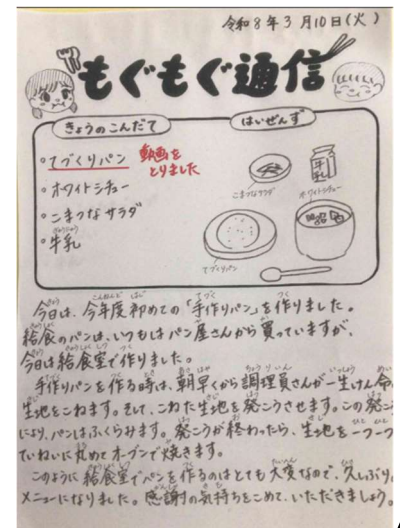 令和8年3月10日(火)
もぐもぐ通信
きょうのこんだて
はいぜんず
○てづくりパン
動画を
とりました
○ホワイトシチュー
○こまつなサラダ
○牛乳
ぎゅうにゅう
牛乳
こまつなサラダ
ホワイトシチュー
てづくりパン
今日は、今年度初めての「手作りパン」を作りました。
給食のパンは、いつもはパン屋さんから買っていますが、
今日は給食室で作りました。
手作りパンを作る時は、朝早くから調理員さんが一生けん命
生地をこねます。そして、こねた生地を発こうさせます。この発こ
により、パンはふくらみます。発こうが終わったら、生地を一つ一つ
ていねいに丸めてオーブンで焼きます。
このように給食室でパンを作るのはとても大変なので、久しぶり
メニューになりました。感謝の気持ちをこめて、いただきましょう。